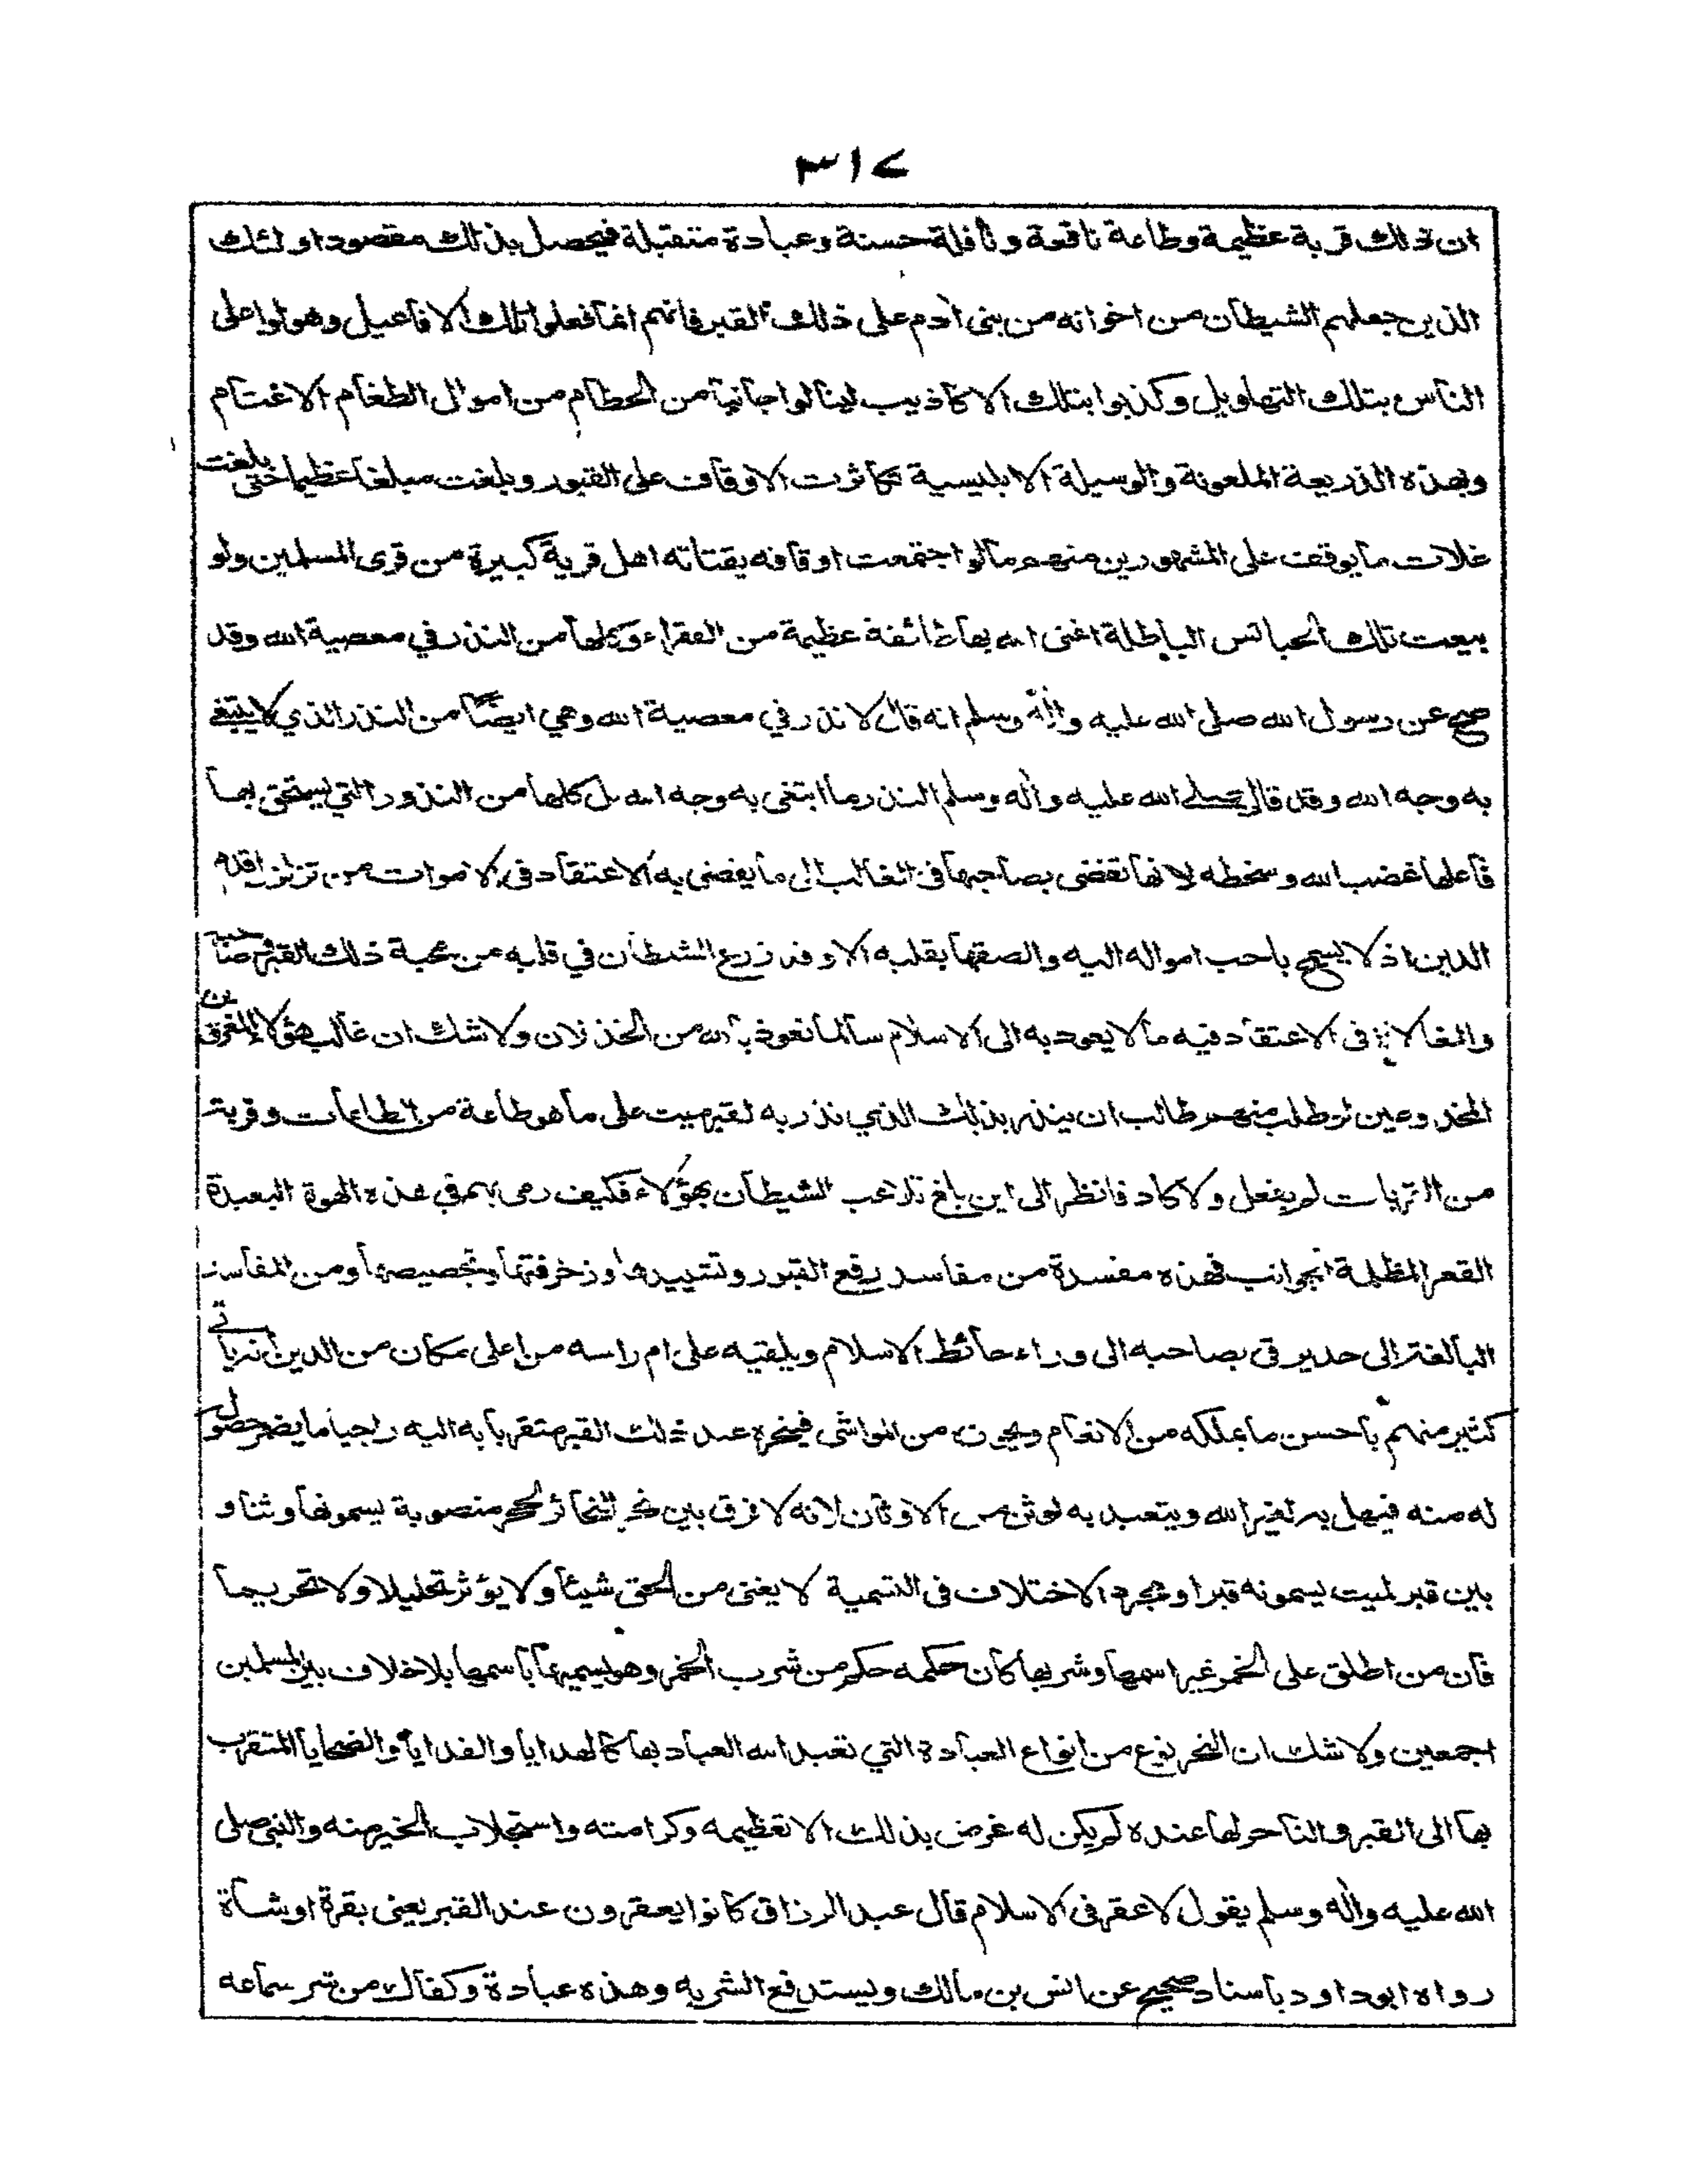 ٣١٧
ان ذلك قربة عظيمة وطاعة نافعة ونافلة حسنة وعبادة متقبلة فيحصل بذلك مقصود اولئك
الذين جعلهم الشيطان من اخوانه من بنى آدم على ذلك القبر فانهم انما فعلوا تلك الافاعيل وهولوا على
الناس بتلك التهاويل وكذبوا بتلك الاكاذيب لينالوا جانبا من الحطام من اموال الطغام الاغتام
وبهذه الذريعة الملعونة والوسيلة الابليسية تكاثرت الاوقاف على القبور وبلغت مبلغا عظيما حتى بلغت
غلات ما يوقف على المشهورين منهم ما لو اجتمعت اوقافه يقتاته اهل قرية كبيرة من قرى المسلمين ولو
بيعت تلك الحبائس الباطلة اغنى الله بها طائفة عظيمة من الفقراء وكلها من النذر في معصية الله وقد
صح عن رسول الله صلى الله عليه وآله وسلم انه قال لا نذر في معصية الله وهي ايضا من النذر الذي لا يبتغى
به وجه الله وقد قال صلى الله عليه وآله وسلم النذر ما ابتغى به وجه الله بل كلها من النذور التي يستحق بها
فاعلها غضب الله وسخطه لانها تفضى بصاحبها فى الغالب الى ما يفضى به الاعتقاد فى الاموات من تزلزل قدم
الدين اذ لا يسمح باحب امواله اليه والصقها بقلبه الا وقد زرع الشيطان في قلبه من محبة ذلك القبر وصاحبه
والمغالاة فى الاعتقاد فيه ما لا يعود به الى الاسلام سالما نعوذ بالله من الخذلان ولا شك ان غالب هؤلاء المغرورين
المخدوعين لو طلب منهم طالب ان ينذر بذلك الذي نذر به لقبر ميت على ما هو طاعة من الطاعات وقربة
من القربات لم يفعل ولا كاد فانظر الى اين بلغ تلاعب الشيطان بهؤلاء فكيف رمى بهم في هذه الهوة البعيدة
القعر المظلمة الجوانب فهذه مفسدة من مفاسد رفع القبور وتشييدها وزخرفتها وتجصيصها ومن المفاسد
البالغة الى حد يرقى بصاحبه الى وراء حائط الاسلام ويلقيه على ام راسه من اعلى مكان من الدين ان ياتى
كثير منهم باحسن ما يملكه من الانعام ويحوزه من المواشى فينحره عند ذلك القبر متقربا به اليه راجيا ما يضمر حصول
له منه فيهل به لغير الله ويتعبد به لوثن من الاوثان لانه لا فرق بين نحر النحائر لحجر منصوبة يسمونها وثنا و
بين قبر لميت يسمونه قبرا ومجرد الاختلاف فى التسمية لا يغنى من الحق شيئا ولا يؤثر تحليلا ولا تحريما
فان من اطلق على الخمر غير اسمها وشربها كان حكمه حكم من شرب الخمر وهو يسميها باسمها بلا خلاف بين المسلمين
اجمعين ولا شك ان النحر نوع من انواع العبادة التي تعبد الله العباد بها كالهدايا والفدايا والضحايا المتقرب
بها الى القبر والناحر لها عنده لم يكن له غرض بذلك الا تعظيمه وكرامته واستجلاب الخير منه والنبى صلى
الله عليه وآله وسلم يقول لا عقر فى الاسلام قال عبد الرزاق كانوا يعقرون عند القبر يعنى بقرة او شاة
رواه ابو داود باسناد صحيح عن انس بن مالك ويستدفع الشر به وهذه عبادة وكفاك من شر سماعه